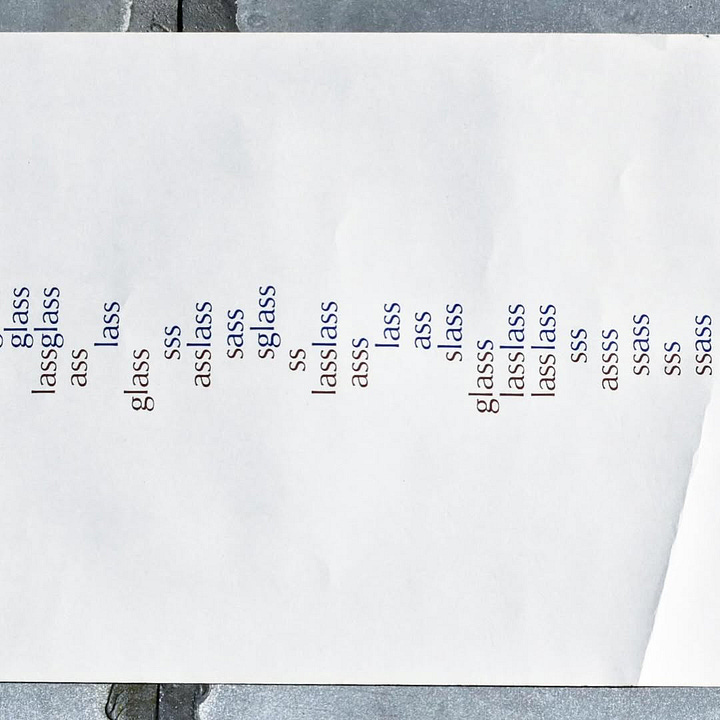 glass
lassglass
ass
lass
glass
sss
asslass
sass
sglass
ss
lasslass
asss
lass
ass
slass
glasss
lasslass
lasslass
sss
assss
ssass
sss
ssass